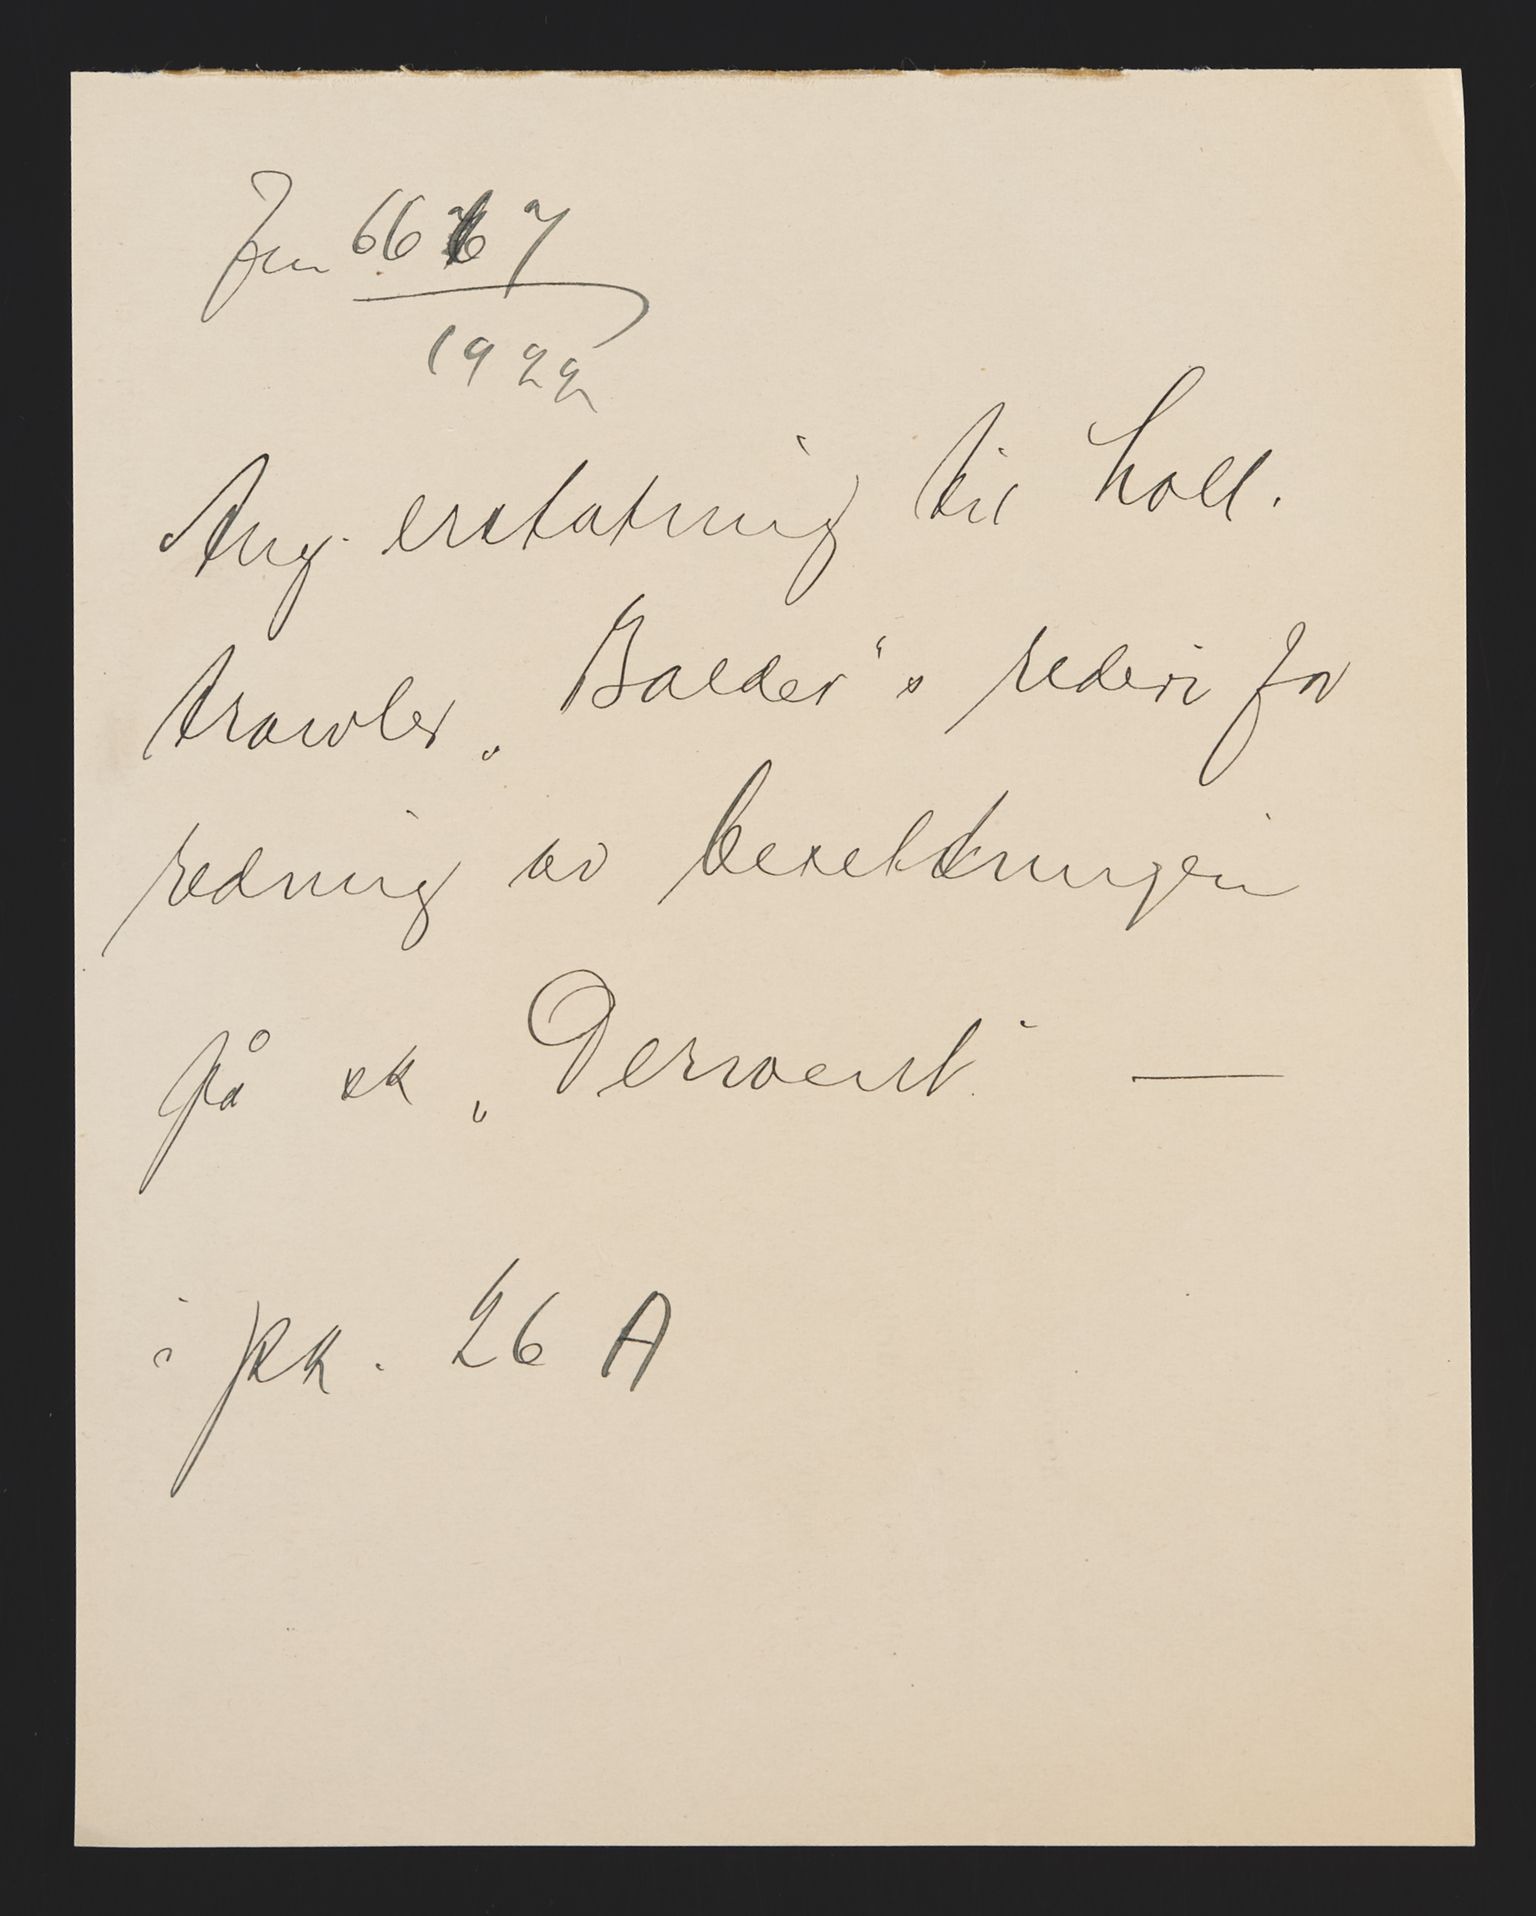 Jnr 6667
1922
Ang. erstatning til holl.
trawler „Balder"s rederi for
redning av besetningen
på sk „Derwent" —
i pk. 26 A